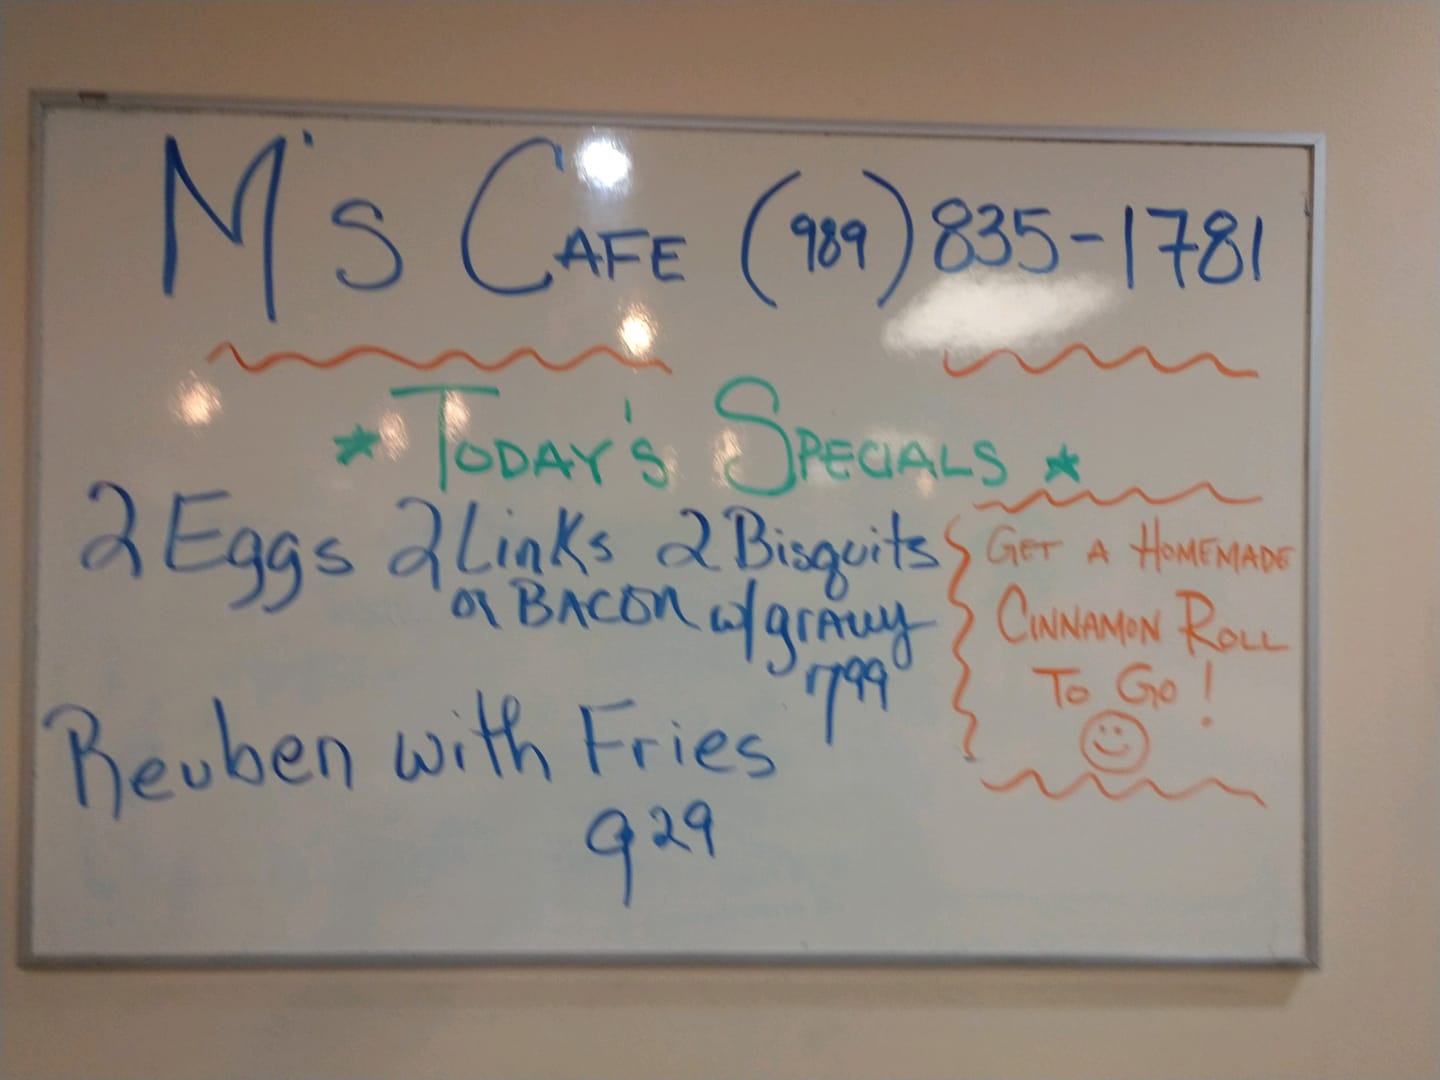 M's CAFE (989) 835-1781
TODAY'S SPECIALS
2 Eggs 2 Links 2 Bisquits
or BACON w/gravy
7 99
Reuben with Fries
9 29
GET A HOMEMADE
CINNAMON ROLL
TO GO!